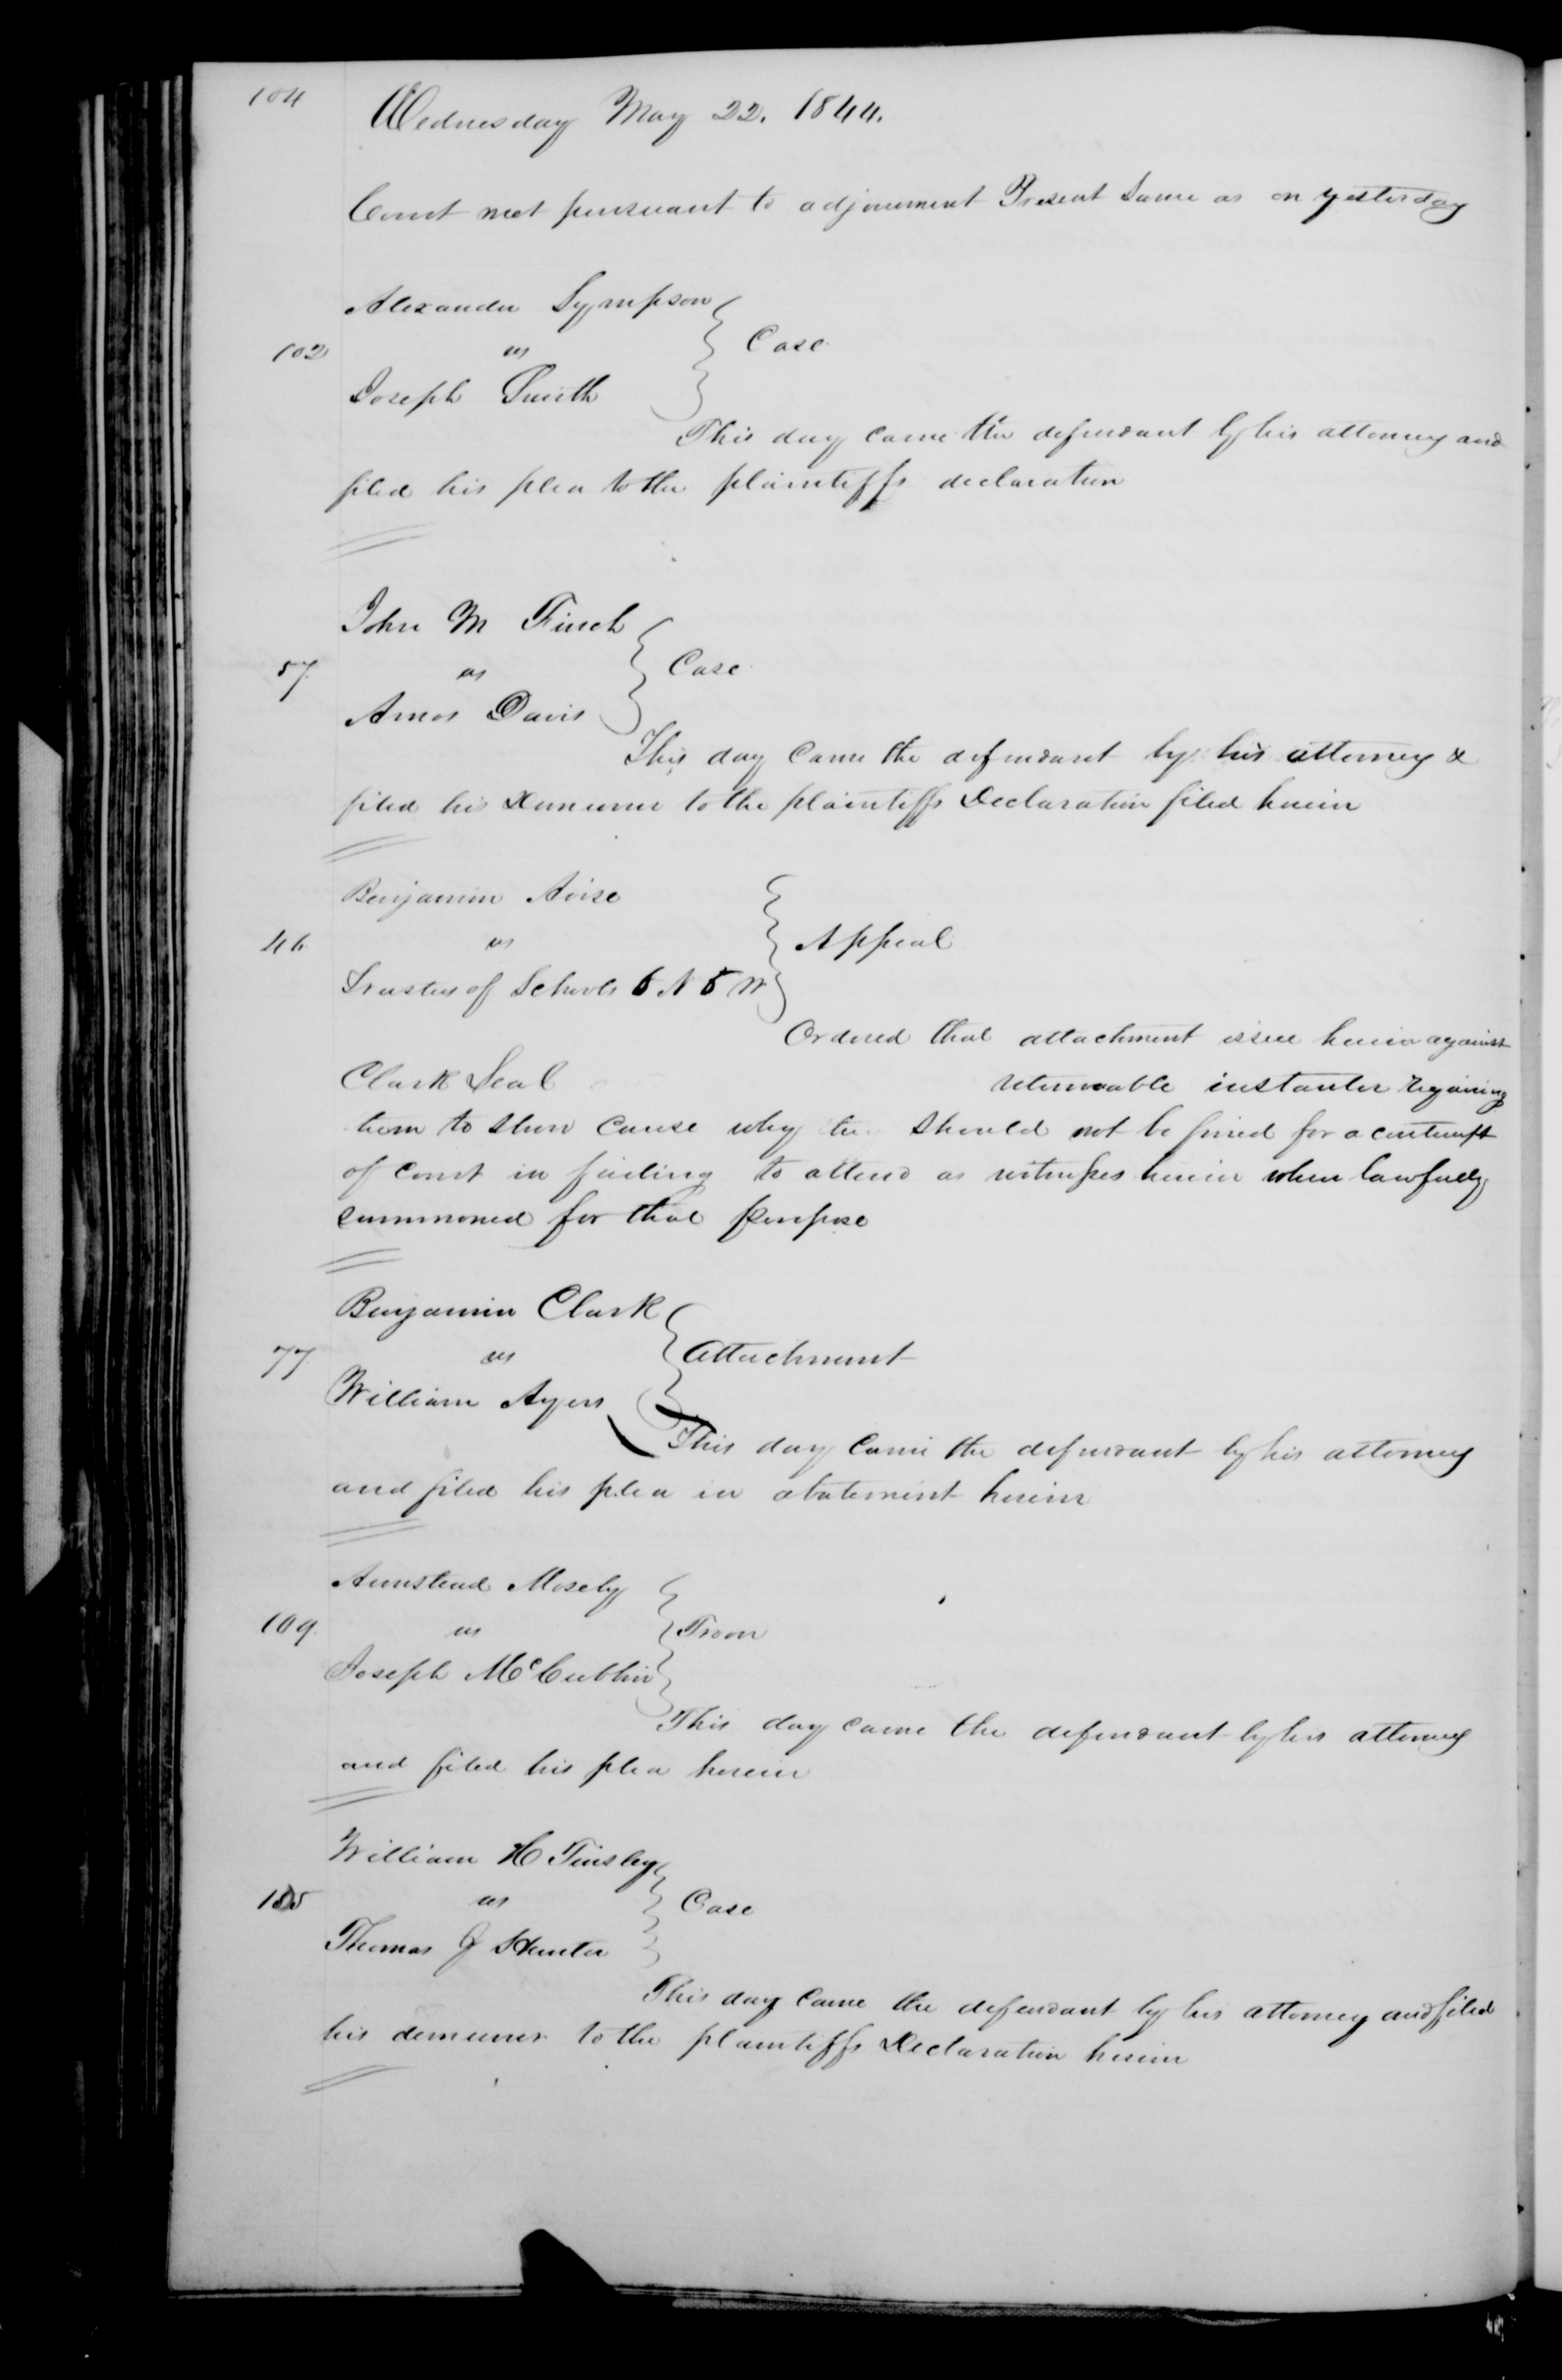 104
Wednesday May 22. 1844.
Court met pursuant to adjournment Present Same as on yesterday
Alexander Sympson
102 vs } Case
Joseph Smith
This day came the defendant by his attorney and
filed his plea to the plaintiffs declaration
John M Finch
57 vs } Case
Amos Davis
This day came the defendant by his attorney &
filed his Demurrer to the plaintiffs Declaration filed herein
Benjamin Avise
46 vs } Appeal
Trustees of Schools 6 N 5 W
Ordered that attachment issue herein against
Clark Leal returnable instanter requiring
him to show cause why he should not be fined for a contempt
of court in failing to attend as witnesses herein when lawfully
summoned for that purpose
Benjamin Clark
77 vs } Attachment
William Ayers
This day came the defendant by his attorney
and filed his plea in abatement herein
Armstead Mosely
109 vs } Trover
Joseph McCubbin
This day came the defendant by his attorney
and filed his plea herein
William H Tinsley
vs } Case
Thomas J Hunter
This day came the defendant by his attorney and filed
his demurrer to the plaintiffs Declaration herein